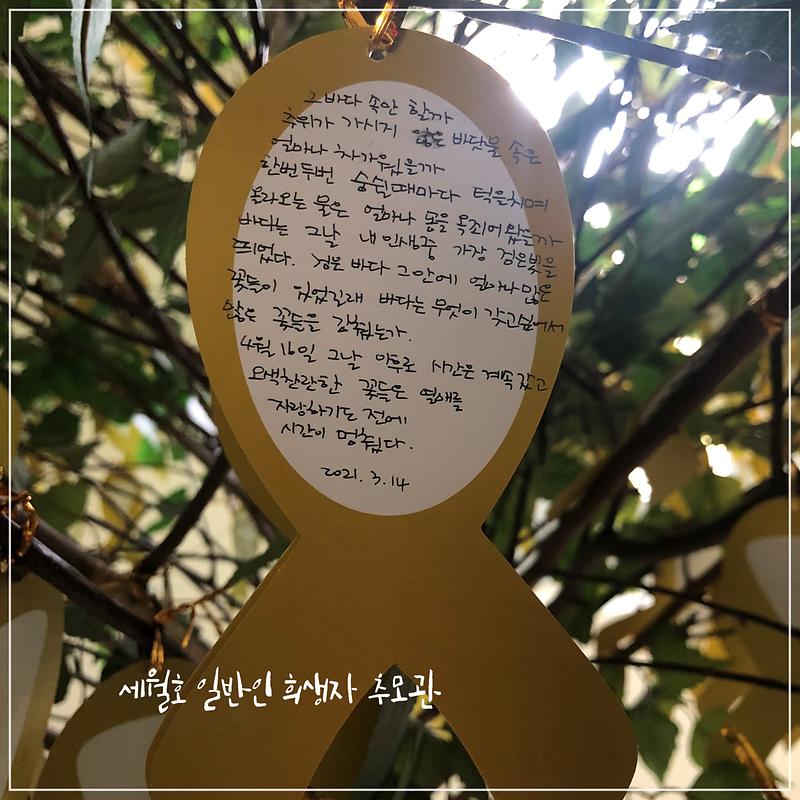 그바다 속안 할까
추위가 가시지 않은 바닷물 속은
얼마나 차가웠을까
한번 두번 숨쉴때마다 턱을치며
올라오는 물은 얼마나 몸을 옥죄어 왔을까
바다는 그날 내 인생중 가장 검은빛을
띄었다. 검은 바다 그안에 얼마나 많은
꽃들이 있었길래 바다는 무엇이 갖고싶어서
많은 꽃들을 감췄는가.
4월 16일 그날 이후로 시간은 계속갔고
오색찬란한 꽃들은 열매를
자랑하기도 전에
시간이 멈췄다.
2021. 3. 14
세월호 일반인 희생자 추모관